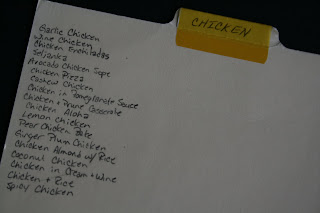 CHICKEN
Garlic Chicken
Wine Chicken
Chicken Enchiladas
Seljanka
Avocado Chicken Supe
Chicken Pizza
Cashew Chicken
Chicken in Pomegranate Sauce
Chicken + Prune Casserole
Chicken Aloha
Lemon Chicken
Pear Chicken Bake
Ginger Plum Chicken
Chicken Almond w/ Rice
Coconut Chicken
Chicken in Cream + Wine
Chicken + Rice
Spicy Chicken